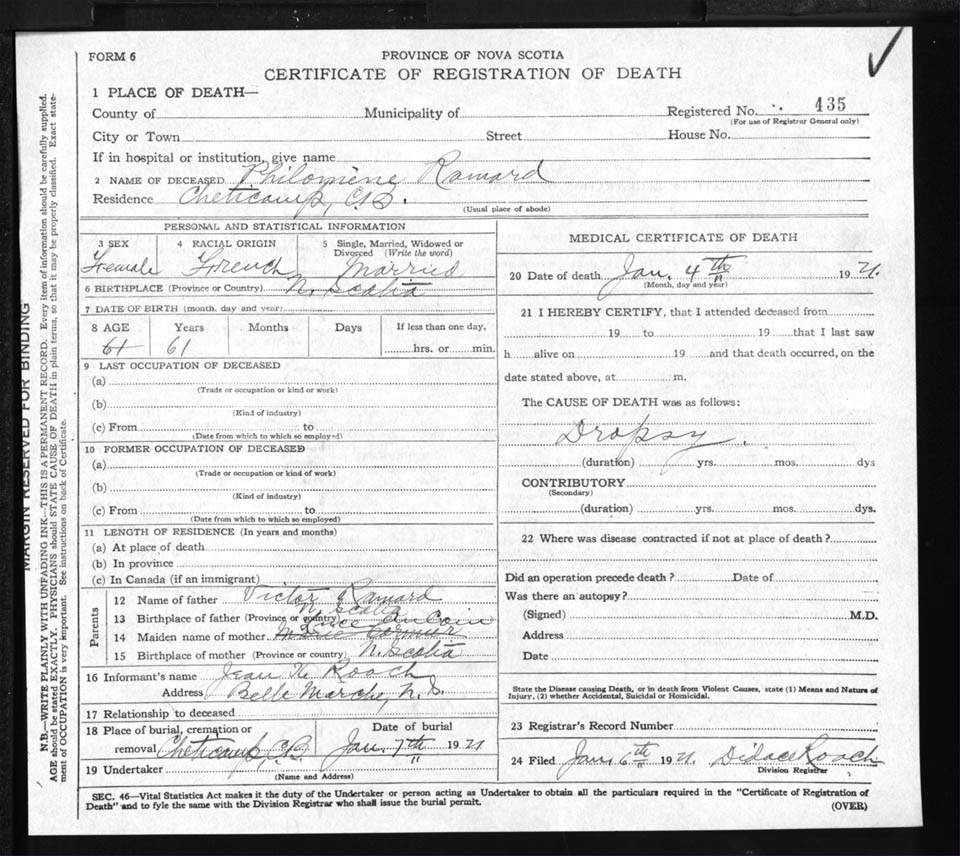 FORM 6
PROVINCE OF NOVA SCOTIA
CERTIFICATE OF REGISTRATION OF DEATH
1 PLACE OF DEATH—
County of Municipality of Registered No. 435
(For use of Registrar General only)
City or Town Street House No.
If in hospital or institution, give name
2 NAME OF DECEASED Philomène Ramard
Residence Cheticamp, C.B.
(Usual place of abode)
PERSONAL AND STATISTICAL INFORMATION
3 SEX 4 RACIAL ORIGIN 5 Single, Married, Widowed or Divorced (Write the word)
Female French Married
6 BIRTHPLACE (Province or Country) N. Scotia
7 DATE OF BIRTH (month, day and year)
8 AGE Years Months Days If less than one day,
61 61 hrs. or min.
9 LAST OCCUPATION OF DECEASED
(a)
(Trade or occupation or kind or work)
(b)
(Kind of industry)
(c) From to
(Date from which to which so employed)
10 FORMER OCCUPATION OF DECEASED
(a)
(Trade or occupation or kind of work)
(b)
(Kind of industry)
(c) From to
(Date from which to which so employed)
11 LENGTH OF RESIDENCE (In years and months)
(a) At place of death
(b) In province
(c) In Canada (if an immigrant)
Parents
12 Name of father Victor Ramard
13 Birthplace of father (Province or country) N. Scotia
AuCoin
14 Maiden name of mother Marie Cormier
15 Birthplace of mother (Province or country) N. Scotia
16 Informant's name Jean H. Roach
Address Belle Marche, N.S.
17 Relationship to deceased
18 Place of burial, cremation or Date of burial
removal Cheticamp, C.B. Jan. 7th 1921
19 Undertaker
(Name and Address)
MEDICAL CERTIFICATE OF DEATH
20 Date of death Jan. 4th 1921.
(Month, day and year)
21 I HEREBY CERTIFY, that I attended deceased from
19 to 19 that I last saw
h alive on 19 and that death occurred, on the
date stated above, at m.
The CAUSE OF DEATH was as follows:
Dropsy.
(duration) yrs. mos. dys
CONTRIBUTORY
(Secondary)
(duration) yrs. mos. dys.
22 Where was disease contracted if not at place of death?
Did an operation precede death? Date of
Was there an autopsy?
(Signed) M.D.
Address
Date
State the Disease causing Death, or in death from Violent Causes, state (1) Means and Nature of
Injury, (2) whether Accidental, Suicidal or Homicidal.
23 Registrar's Record Number
24 Filed Jan. 6th 1921. Didace Roach
Division Registrar
SEC. 46—Vital Statistics Act makes it the duty of the Undertaker or person acting as Undertaker to obtain all the particulars required in the "Certificate of Registration of
Death" and to fyle the same with the Division Registrar who shall issue the burial permit.
(OVER)
MARGIN RESERVED FOR BINDING
N.B.—WRITE PLAINLY WITH UNFADING INK—THIS IS A PERMANENT RECORD. Every item of information should be carefully supplied.
AGE should be stated EXACTLY. PHYSICIANS should STATE CAUSE OF DEATH in plain terms, so that it may be properly classified. Exact state-
ment of OCCUPATION is very important. See instructions on back of Certificate.